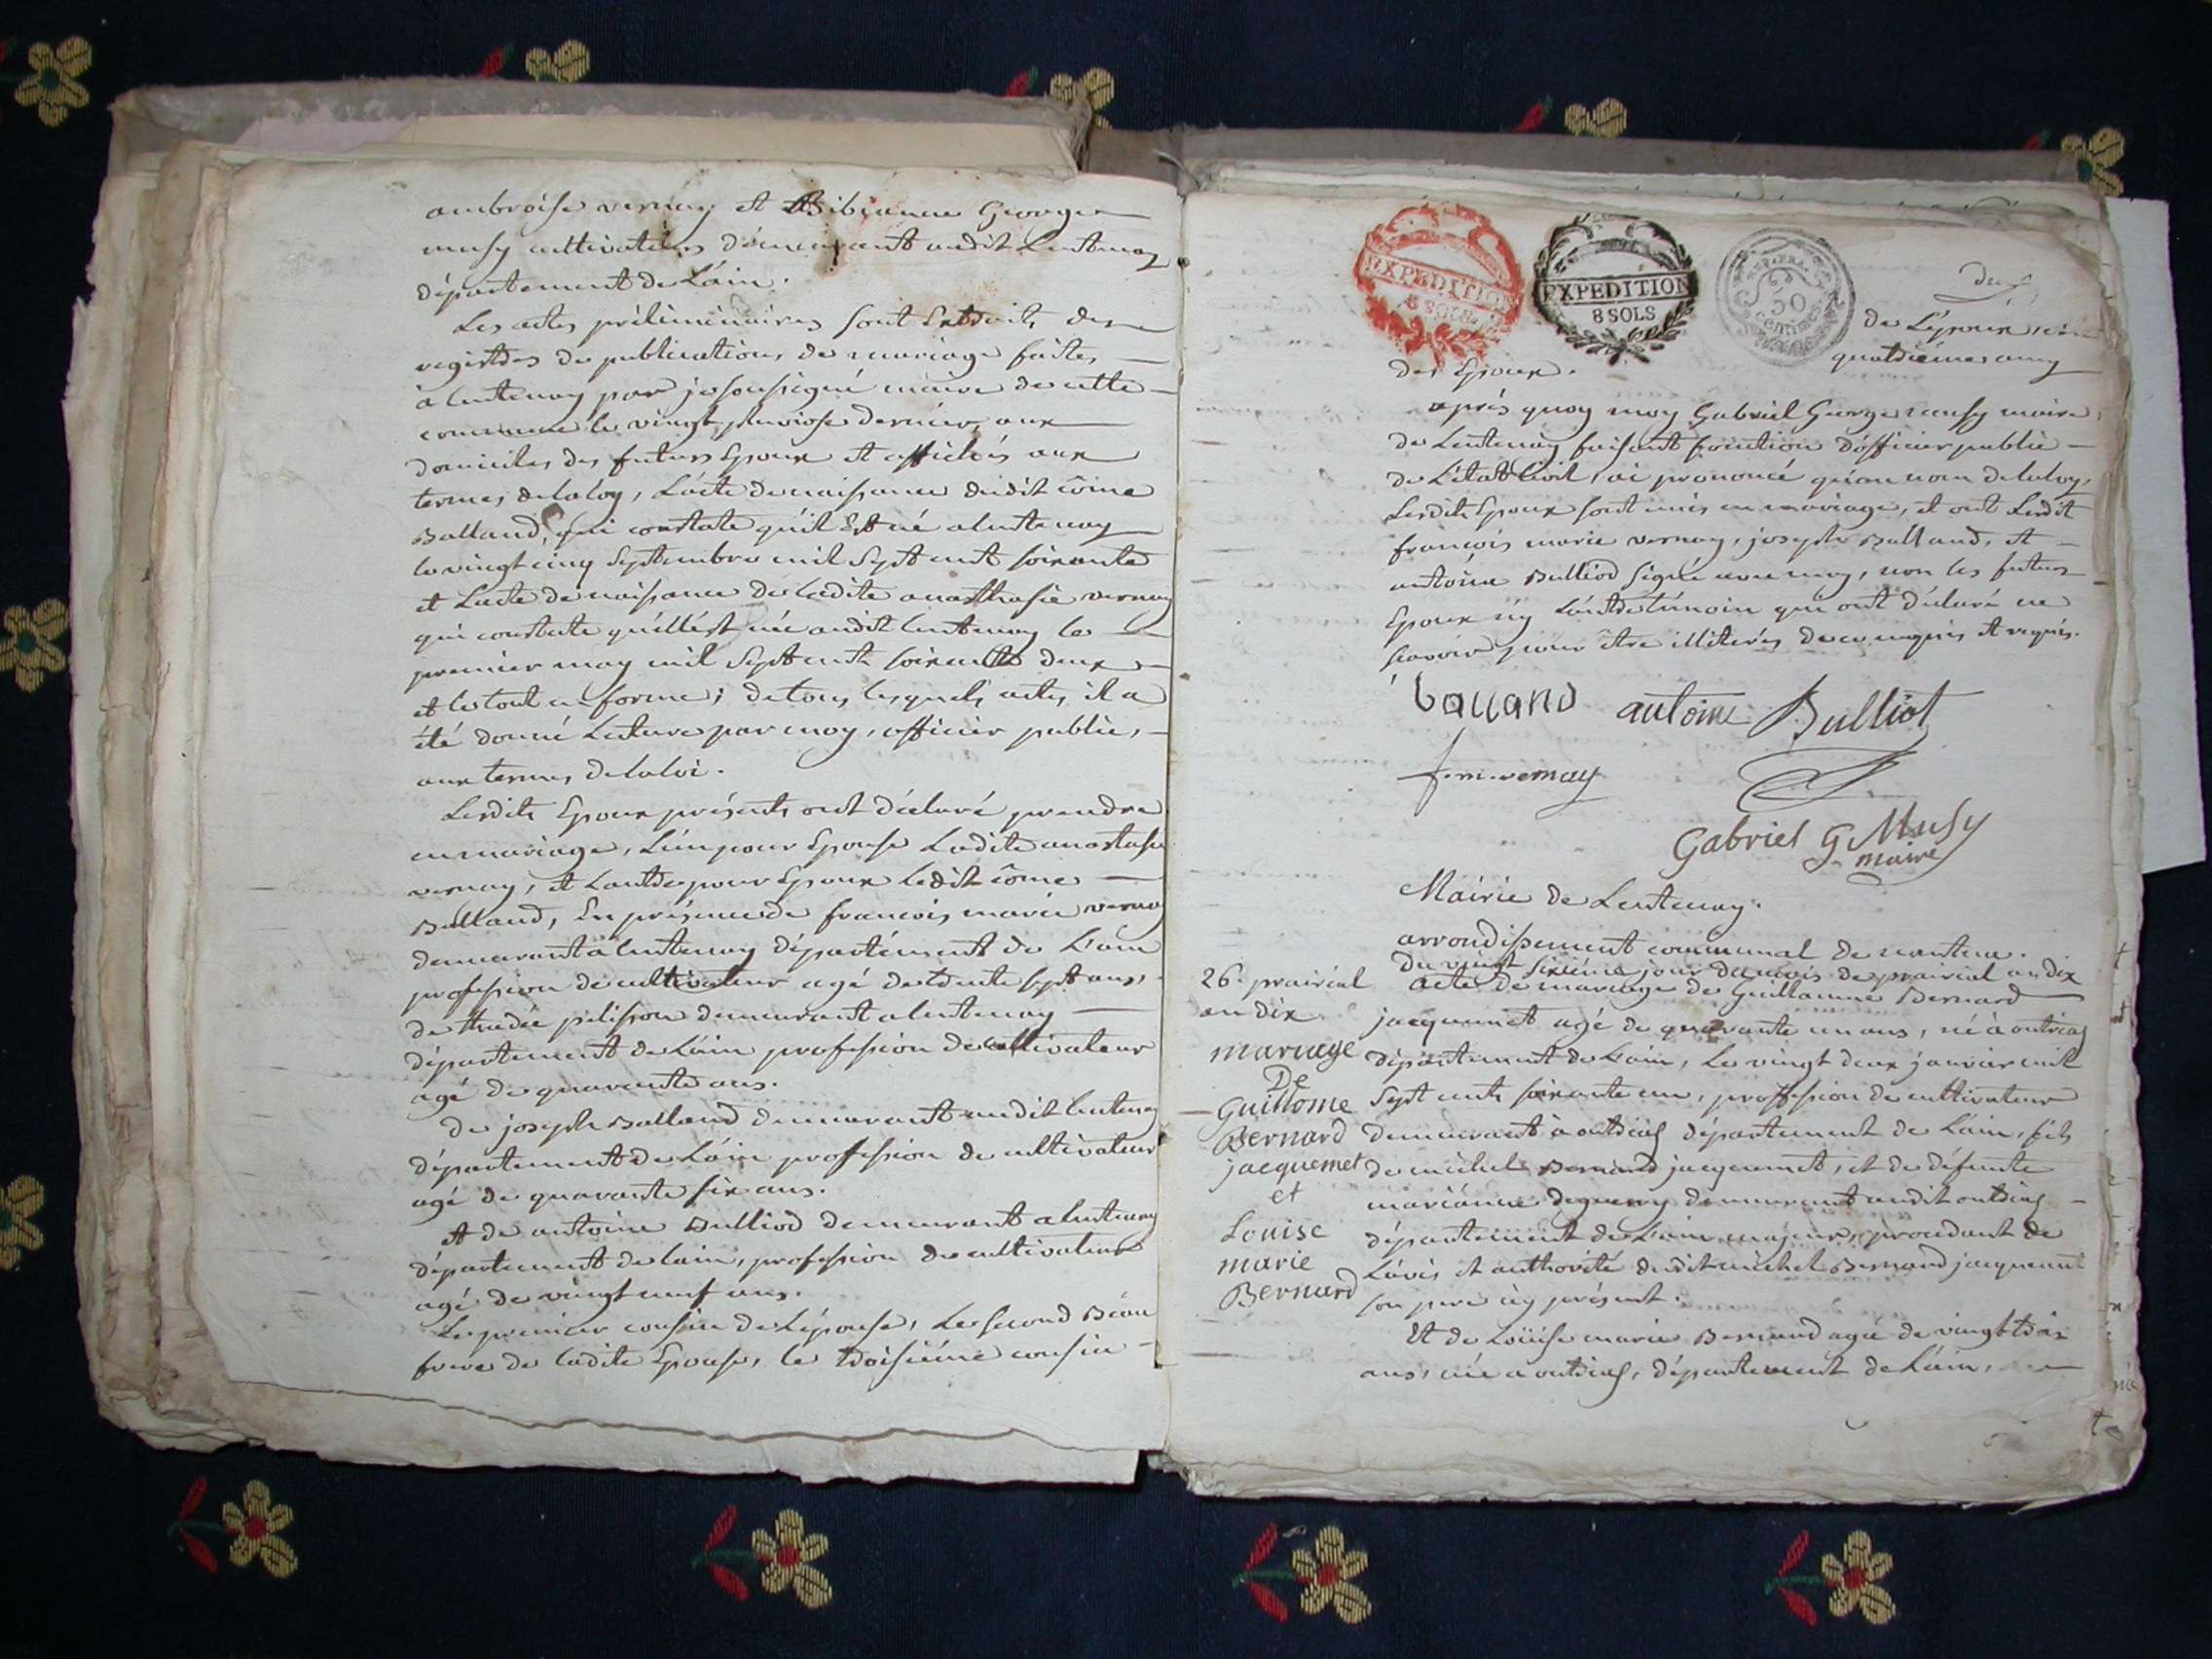 ambroise vernay et Bibianne George
musy cultivateurs demeurant audit Lentenay
département de Láin.
Les actes préliminaires sont Extraits des
registres de publications de mariage faites
a lentenay par je soussigné maire de cette
commune le vingt pluviose dernier, aux
domiciles des futurs Epoux et affichés aux
termes de la loy, L'acte de naissance dudit côme
Balland, qui constate qu'il Est né a lentenay
le vingt cinq Septembre mil Sept cent soixante
et Lacte de naissance de ladite anasthasie vernay
qui constate quéllést née audit lentenay le
premier may mil Sept cents soixante deux
et le tout en forme; de tous lesquels actes il a
été donné Lecture par moy, officier public,
aux termes de la loi.
Lesdits Epoux présents ont déclaré prendre
en mariage, L'un pour Epouse Ladite anastasie
vernay, et Lautre pour Epoux ledit côme
Balland, En présence de francois marie vernay
demeurant a lentenay département de L'ain
profession de cultivateur agé de trente sept ans,
de thadée pelisson demeurant a lentenay
département de Láin profession de cultivateur
agé de quarante ans.
De joseph Balland demeurant audit lentenay
département de Láin profession de cultivateur
agé de quarante six ans.
et de antoine Bulliod demeurant a lentenay
département de lain, profession de cultivateur
agé de vingt neuf ans.
Le premier cousin de Lépouse, Le second Beau
frere de ladite Epouse, le troisieme cousin
EXPEDITION
8 SOLS
EXPEDITION
8 SOLS
REP. FRA.
50
centimes
de Lépoux
quatrième amy
des Epoux.
après quoy moy Gabriel George musy maire
de Lentenay faisant fonction d'officier public
de L'état Civil, ai prononcé qu'au nom de la loy,
Lesdits Epoux sont unis en mariage, et ont Lesdit
francois marie vernay, joseph Balland, et
antoine Bulliod signé avec moy, non les futurs
Epoux ny Láutre témoin qui ont déclaré ne
scavoir pour être illiterés de ce enquis et requis.
balland antoine Bulliot
f. m. vernay
Gabriel G Musy
maire
Mairie de Lentenay.
arrondissement communal de nantua.
Du vingt sixième jour du mois de prairial an dix
26e prairial
an dix
mariage
De
Guillome
Bernard
jacquemet
et
Louise
marie
Bernard
acte de mariage de Guillaume Bernard
jacquemet agé de quarante un ans, né à outriaz
département de L'ain, Le vingt deux janvier mil
Sept cents soixante un, proffession de cultivateur
demeurant à outriaz département de Láin, fils
de michel Bernard jacquemet, et de défunte
mariánne deguerry demeurant audit outriaz
département de L'ain majeur, procédant de
Lávis et authorité dudit michel Bernard jacquemet
son pere icy présent.
Et de Loüise marie Bernard agée de vingt trois
ans, née a outriaz, département de Láin,